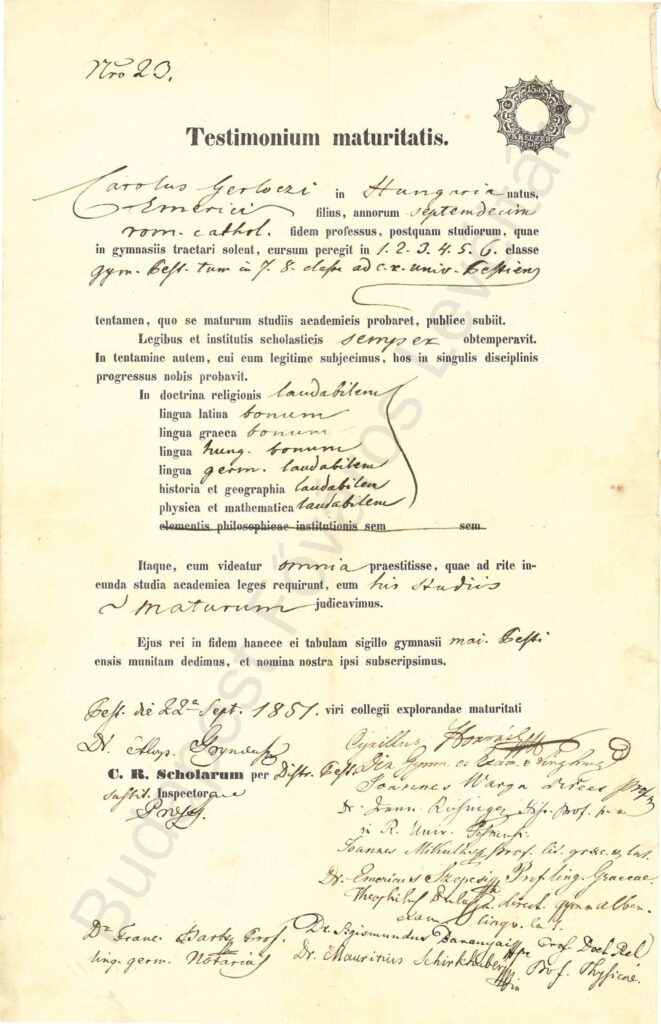 Nro 23.
15 K
KREUZER
Testimonium maturitatis.
Carolus Gerloczi in Hungaria natus,
Emerici filius, annorum septemdecim
rom. cathol. fidem professus, postquam studiorum, quae
in gymnasiis tractari solent, cursum peregit in 1. 2. 3. 4. 5. 6. classe
gym. Pest. tum in 7. 8. classe ad c. r. univ. Pestien
tentamen, quo se maturum studiis academicis probaret, publice subiit.
Legibus et institutis scholasticis semper obtemperavit.
In tentamine autem, cui eum legitime subjecimus, hos in singulis disciplinis
progressus nobis probavit.
In doctrina religionis laudabilem
lingua latina bonum
lingua graeca bonum
lingua hung. bonum
lingua germ. laudabilem
historia et geographia laudabilem
physica et mathematica laudabilem
elementis philosophicae institutionis sem sem
Itaque, cum videatur omnia praestitisse, quae ad rite in-
eunda studia academica leges requirunt, eum his studiis
maturum judicavimus.
Ejus rei in fidem hancce ei tabulam sigillo gymnasii mai. Pesti
ensis munitam dedimus, et nomina nostra ipsi subscripsimus.
Pest. die 22a Sept. 1851. viri collegii explorandae maturitati
Dr. Alop.
Cyrillus
C. R. Scholarum per Distr. Pest.
Gymn.
Inspectorque
Joannes Warga direct
Praes.
Dr. Hist. Prof. p. o.
in R. Univ. Pestiensi
Joannes Prof. lit. graec. & lat.
Dr. Emericus Szepesi Prof. ling. Graecae
Theophilus direct. gymn.
exam. lingv. lat.
Dr. Franc. Prof.
ling. germ. Notarius
Dr. Sigismundus Prof. Doct. Rel
Dr. Mauritius Schirkhuber Prof. Physicae.
Budapest Főváros Levéltára